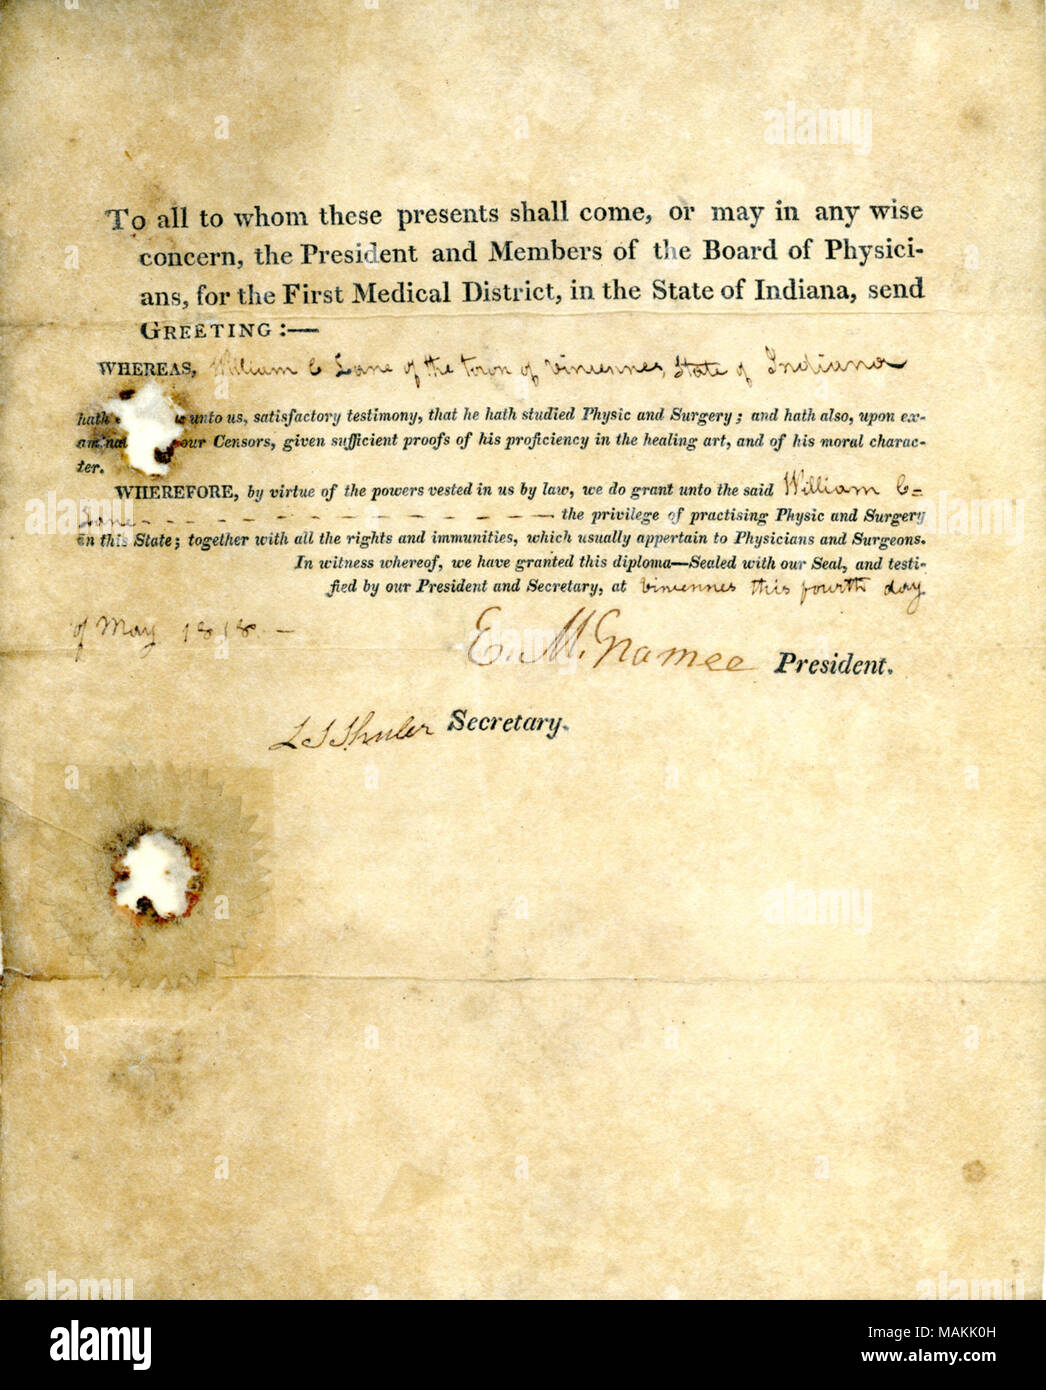 To all to whom these presents shall come, or may in any wise
concern, the President and Members of the Board of Physici-
ans, for the First Medical District, in the State of Indiana, send
GREETING :—
WHEREAS, William C Lane of the town of Vincennes, State of Indiana
hath unto us, satisfactory testimony, that he hath studied Physic and Surgery; and hath also, upon ex-
our Censors, given sufficient proofs of his proficiency in the healing art, and of his moral charac-
ter.
WHEREFORE, by virtue of the powers vested in us by law, we do grant unto the said William C-
Lane - - - - - - - - - - - - - - the privilege of practising Physic and Surgery
in this State; together with all the rights and immunities, which usually appertain to Physicians and Surgeons.
In witness whereof, we have granted this diploma—Sealed with our Seal, and testi-
fied by our President and Secretary, at Vincennes this fourth day
of May 1818 —
E. McNamee President.
Secretary.
alamy
a
Image ID: MAKK0H
www.alamy.com